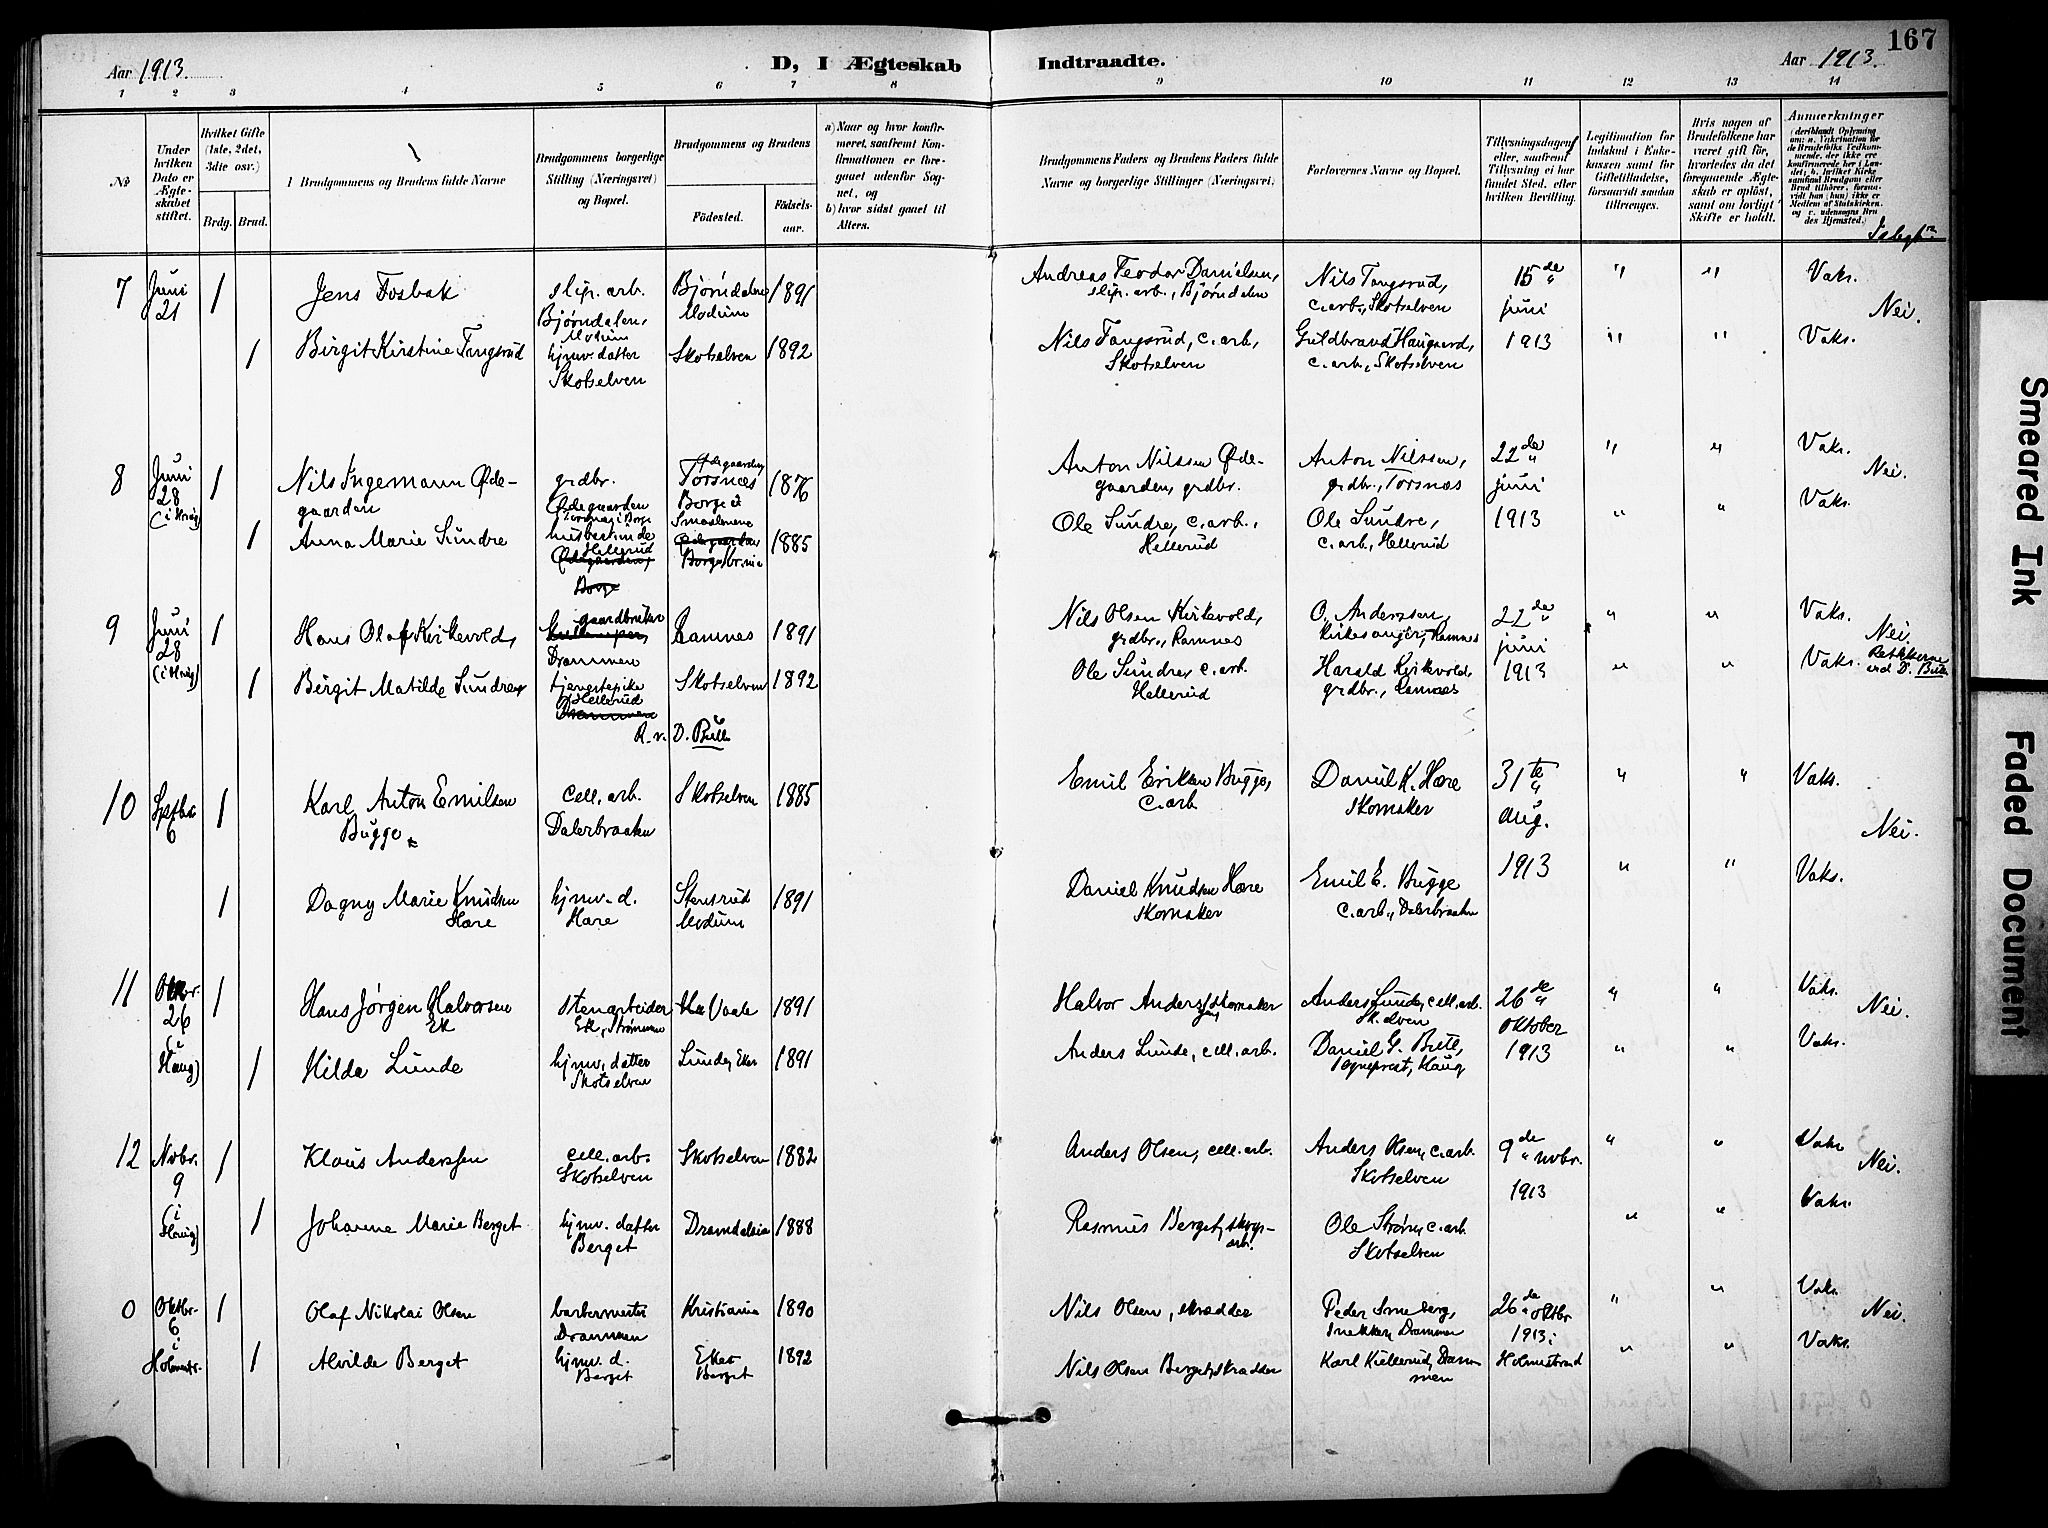 167
Aar 1913.
D, I Ægteskab Indtraadte.
Aar 1913.
1 2 3 4 5 6 7 8 9 10 11 12 13 14
No
Under hvilken Dato er Ægteskabet stiftet.
Hvilket Gifte (1ste, 2det, 3die osv.)
Brdg. Brud.
1 Brudgommens og Brudens fulde Navne
Brudgommens borgerlige Stilling (Næringsvei) og Bopæl.
Brudgommens og Brudens
Födested.
Födsels-aar.
a) Naar og hvor konfirmeret, saafremt Konfirmationen er foregaaet udenför Sognet, og
b) hvor sidst gaaet til Alters.
Brudgommens Faders og Brudens Faders fulde Navne og borgerlige Stillinger (Næringsvei).
Forlovernes Navne og Bopæl.
Tillysningsdagen eller, saafremt Tillysning ei har fundet Sted, efter hvilken Bevilling.
Legitimation for Indskud i Enkekassen samt for Giftetilladelse, forsaavidt saadan tiltrænges.
Hvis nogen af Brudefolkene har været gift før, hvorledes da det foregaaende Ægteskab er opløst, samt om lovligt Skifte er holdt.
Anmærkninger
7 Juni 21 1 Jens Fosbak slip. arb. Bjørndalen, Modum Bjørndalen Modum 1891 Andreas Teodor Danielsen, slip. arb., Bjørndalen Nils Tangsrud, c.arb., Skotselven 15de juni " " Vaks. Nei.
1 Birgit Kirstine Tangsrud hjmv. datter Skotselven Skotselven 1892 Nils Tangsrud, c. arb., Skotselven Guldbrand Haugaard, c. arb., Skotselven 1913 " " Vaks.
8 Juni 28 (i Haug) 1 Nils Ingemann Ødegaarden grdbr. Ødegaarden Torsnæs i Borge Torsnæs Borge i Smaalenene 1876 Anton Nilssen Ødegaarden, grdbr. Anton Nilssen, grdbr., Torsnæs 22de juni " " Vaks. Nei.
1 Anna Marie Sundre Hellerud 1885 Ole Sundre, c. arb., Hellerud Ole Sundre, c. arb., Hellerud 1913 " " Vaks.
9 Juni 28 (i Haug) 1 Hans Olaf Kirkevold, gaardbruker Drammen Ramnes 1891 Nils Olsen Kirkevold, grdbr., Ramnes O. Anderssen, kirkesanger, Ramnes 22de juni " " Vaks. Nei.
1 Birgit Matilde Sundre tjenestepike Hellerud Skotselven 1892 Ole Sundre, c. arb. Hellerud Harald Kirkevold, grdbr., Ramnes 1913 " " Vaks. Rettelserne ved D. Bull
R. v. D. Bull
10 Septbr. 6 1 Karl Anton Emilsen Bugge cell. arb. Dalerbraaten Skotselven 1885 Emil Eriksen Bugge, c. arb Daniel K. Hære skomaker 31te aug. " " Vaks. Nei.
1 Dagny Marie Knudsen Hære hjmv. d. Hære Stensrud Modum 1891 Daniel Knudsen Hære skomaker Emil E. Bugge c. arb., Dalerbraaten 1913 " " Vaks.
11 Oktbr. 26 (i Haug) 1 Hans Jørgen Halvorsen Ek stenarbeider Ek, Strømmen Vaale 1891 Halvor Anderssen, skomaker Anders Lunde, cell. arb. Sk.elven 26de oktober " " Vaks. Nei.
1 Hilda Lunde hjmv. datter Skotselven Lunde, Eker 1891 Anders Lunde, cell. arb. Daniel G. Bull, sogneprest, Haug 1913 " " Vaks.
12 Novbr. 9 (i Haug) 1 Klaus Anderssen cell. arb. Skotselven Skotselven 1882 Anders Olsen, cell. arb. Anders Olsen, c. arb. Skotselven 9de novbr. 1913 " " Vaks. Nei.
1 Johanne Marie Berget hjmv. datter Berget 1888 Rasmus Berget, skogs-arb. Ole Strøm, c. arb. Skotselven " " Vaks.
0 Oktbr. 6 i Holmestr. 1 Olaf Nikolai Olsen barbermester Drammen Kristiania 1890 Nils Olsen, skrædder Peder Smeberg, snekker, Drammen 26de oktbr 1913 i Holmestrand " " Vaks. Nei.
1 Alvilde Berget hjmv. d. Berget Eker Berget 1892 Nils Olsen Berget, skrædder Karl Kiellerud, Drammen " " Vaks.
Smeared Ink
Faded Document